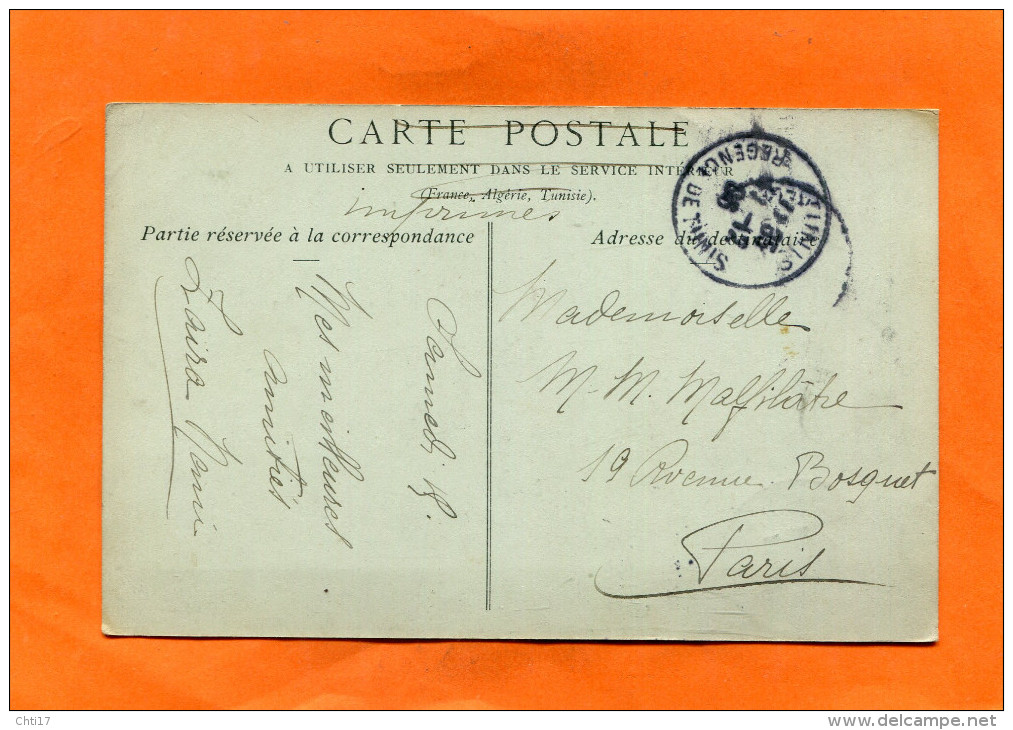 CARTE POSTALE
A UTILISER SEULEMENT DANS LE SERVICE INTÉRIEUR
(France, Algérie, Tunisie).
imprimés
Partie réservée à la correspondance
Adresse du destinataire
TUNIS
REGENCE DE TUNIS
Samedi 18.
Mes meilleures
amitiés
Mademoiselle
M. M. Malfilâtre
19 Avenue Bosquet
Paris
Chti17
www.delcampe.net